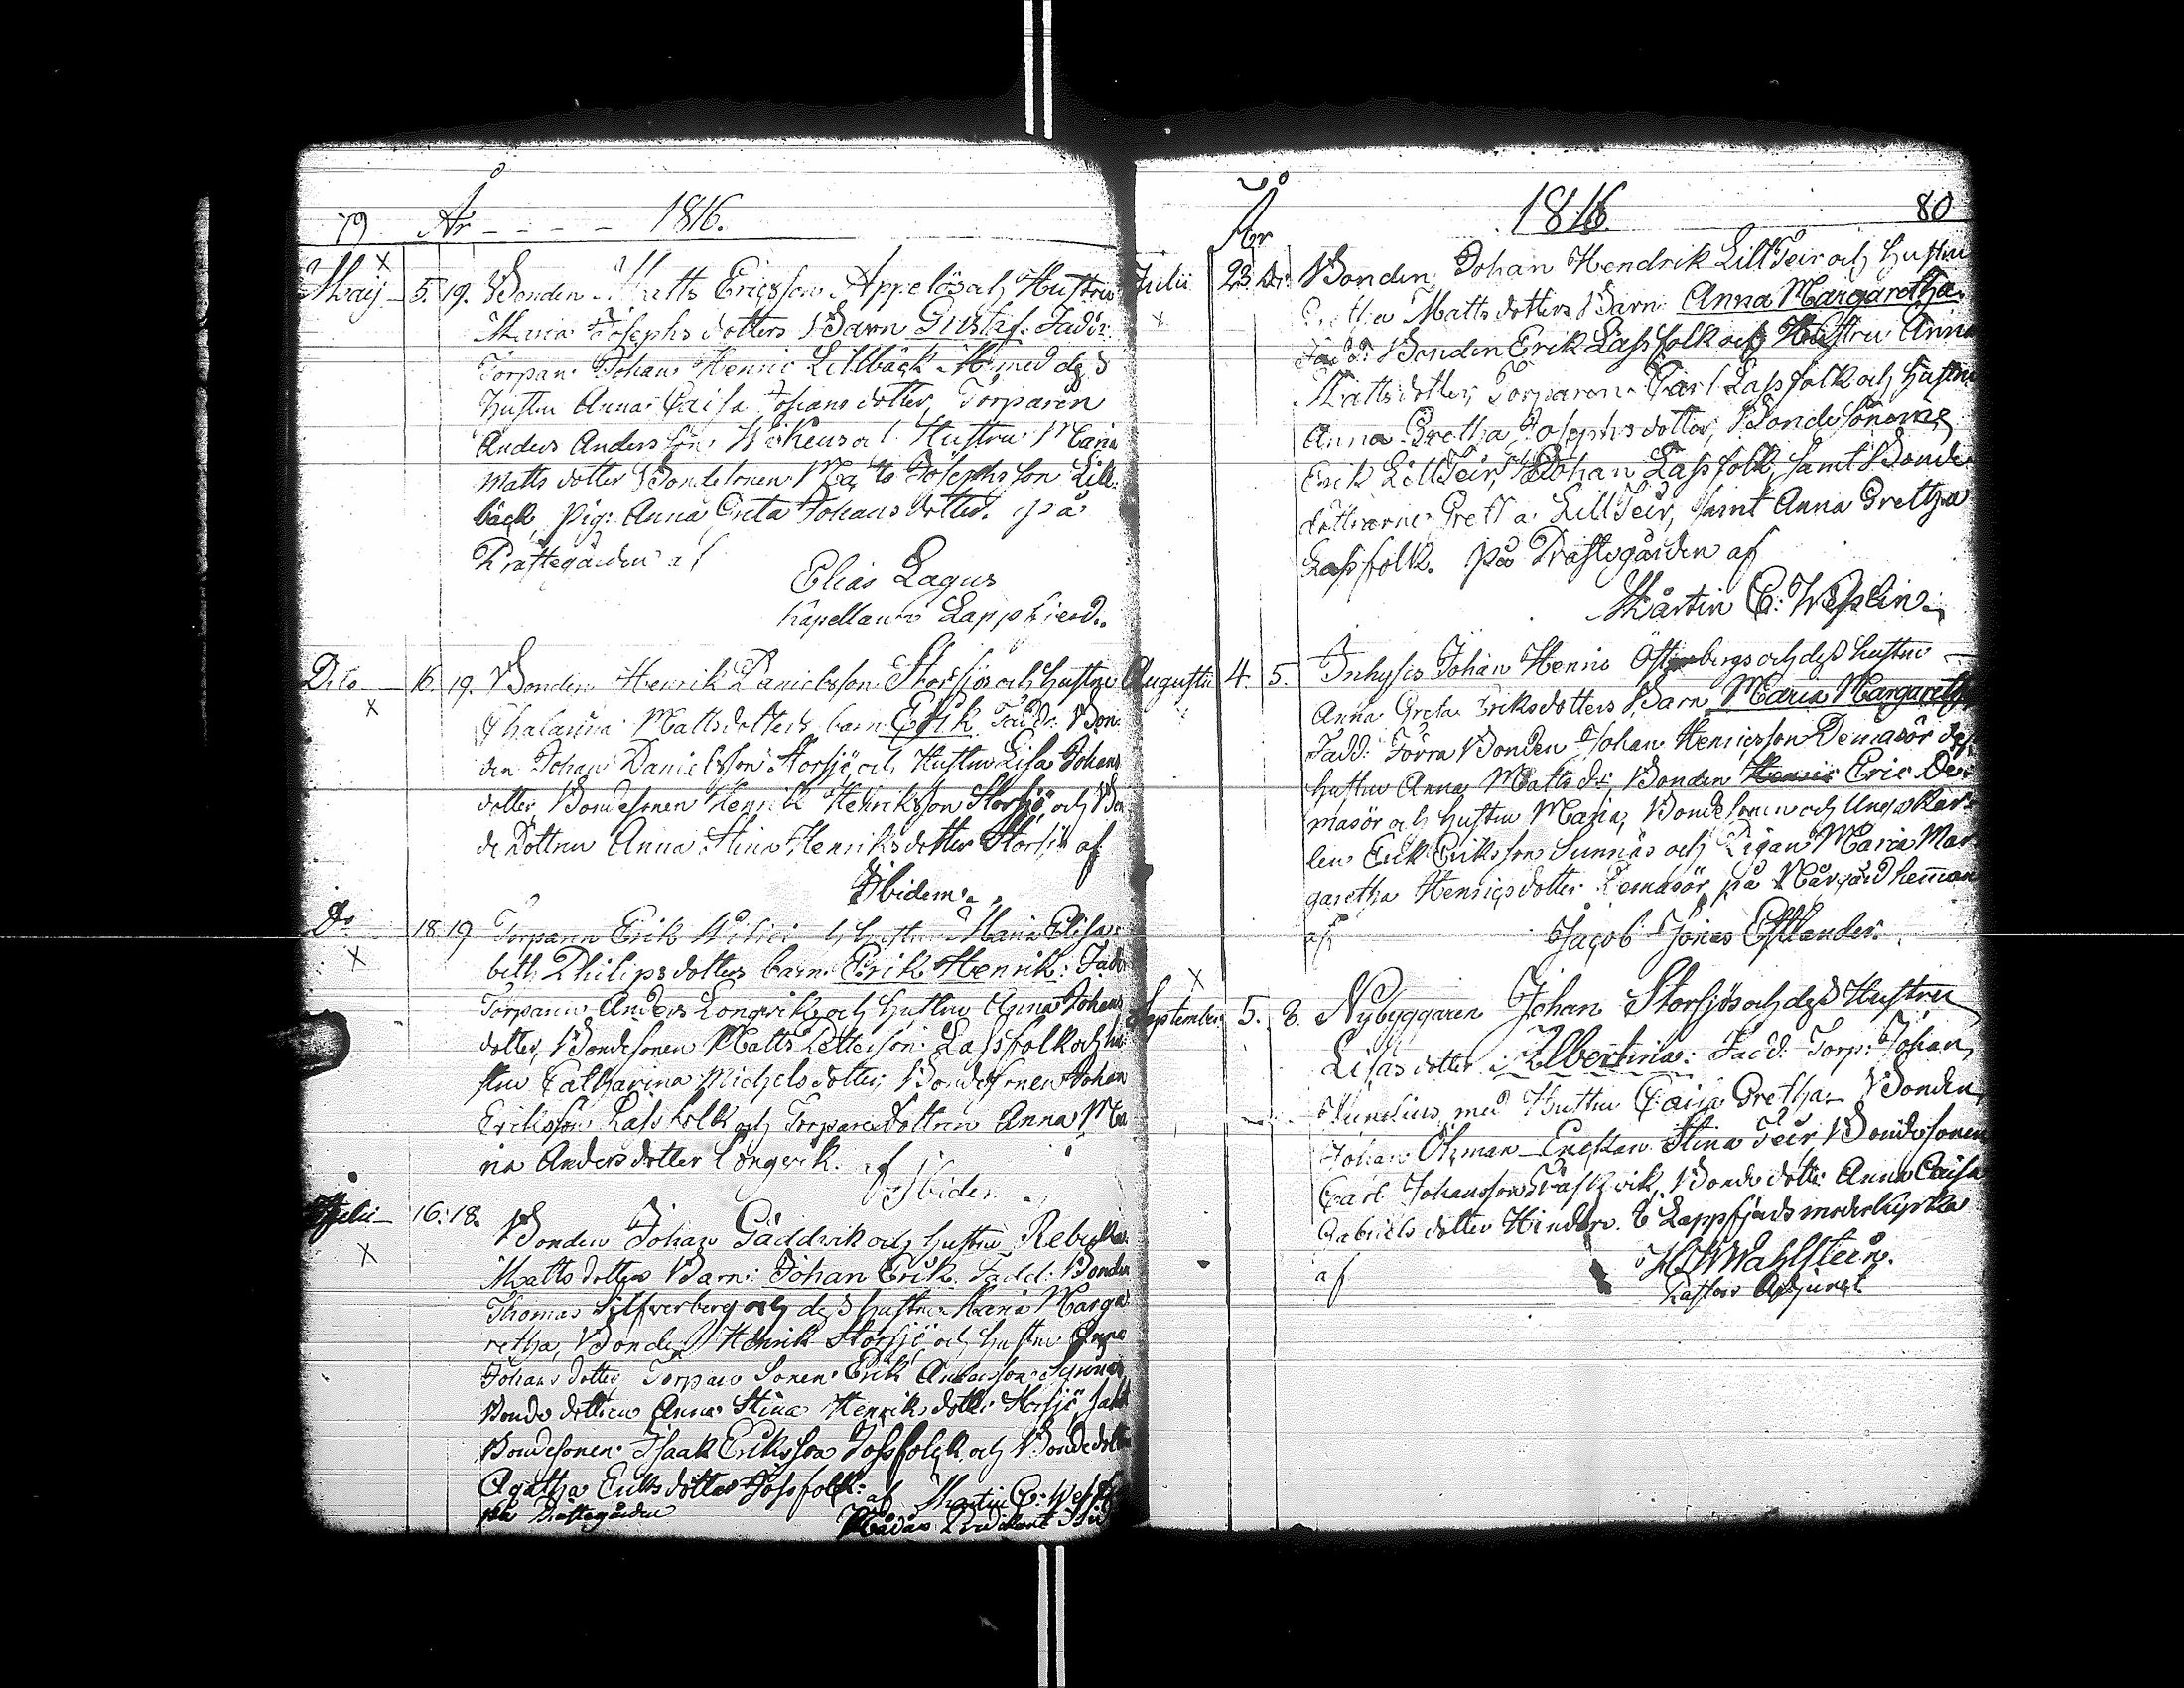 79 År - - - - 1816.
Maij 5. 19. Bonden Matts Ericsson Appelös och Hustru
Maria Josephs dotters Barn Gustaf. Fadd:
Torpar: Johan Henric Lillbäck med dess
hustru Anna Caisa Johans dotter, Torparen
Anders Andersson och Hustru Maria
Matts dotter Bondesonen Matts Josephsson Lill-
bäck, Pig: Anna Greta Johans dotter. på
Prästegården af
Elias Lagus
Kapellan i Lappfierd.
Dito 16. 19. Bonden Henrik Danielsson Storsjös och hustru
Mattsdotters barn Erik. Fadd: Bon-
den Johan Danielsson Storsjö och Hustru Lisa Johans
dotter, Bondesonen Henrik Henriksson Storsjö och Bon-
de Dottren Anna Stina Henriksdotter Storsjö af
Ibidem.
Do 18. 19 Torparen Erik hustru Maria Elisa-
beth Philipsdotters barn: Erik Henrik: Fadd:
Torparen Anders Långvik och hustru Anna Johans
dotter, Bondesonen Matts Pettersson Lassfolk och hu-
stru Catharina Michelsdotter, Bondesonen Johan
Eriksson Lassfolk och Torparedottren Anna Ma-
ria Andersdotter Långvik. af
Ibidem.
Julii 16. 18. Bonden Johan Gäddvik och hustru Rebecka
Mattsdotters Barn: Johan Erik. Fadd: Bonden
Thomas Silfverberg och dess hustru Maria Marga-
retha, Bonden Henrik Storsjö och hustru Anna
Johansdotter Torpare Sonen Erik Andersson
Bonde dottren Anna Stina Henriksdotter Storsjö samt
Bondesonen Isaak Eriksson Jossfolk och Bondedottren
Agatha Eriksdotter Jossfolk: af Martin C: Wesslin
på Prästegården Predikant
År 1816. 80
Julii 23. Do: Bonden Johan Hendrik LillTeir och hustru
Gretha Mattsdotters Barn Anna Margaretha.
Fadd: Bonden Erik Lassfolk och Hustru Anna
Mattsdotter, Torparen Carl Lassfolk och hustru
Anna Gretha Josephsdotter, Bondesönerne
Erik LillTeir, Johan Lassfolk, samt Bonde
döttrarne Greta LillTeir, samt Anna Gretha
Lassfolk. på Prästegården af
Martin C: Wesslin.
Augusti 4. 5. Inhyses Johan Henric Österbergs och dess hustru
Anna Greta Eriksdotters Barn Maria Margaretha
Fadd: Förra Bonden Johan Henricsson Demasör dess
hustru Anna Matts dr, Bonden Eric De-
masör och hustru Maria, Bondesonen och Unga Kar-
len Erik Eriksson Sunnäs och Pigan Maria Mar-
garetha Henricsdotter Demasör, på Någård hemman
af Jacob Jonas Estlander.
September 5. 8. Nybyggaren Johan Storsjös och dess Hustru
Lisas dotter: Albertina: Fadd: Torp: Johan
med Hustru Caisa Gretha Bonden
Johan Öhman Enckan Stina Teir Bondesonen
Carl Johansson Träskvik, Bonde dottr Anna Caisa
Gabrielsdotter Hinders. i Lappfjerds moderkyrka
af Wahlstein.
Pastors Adjunct